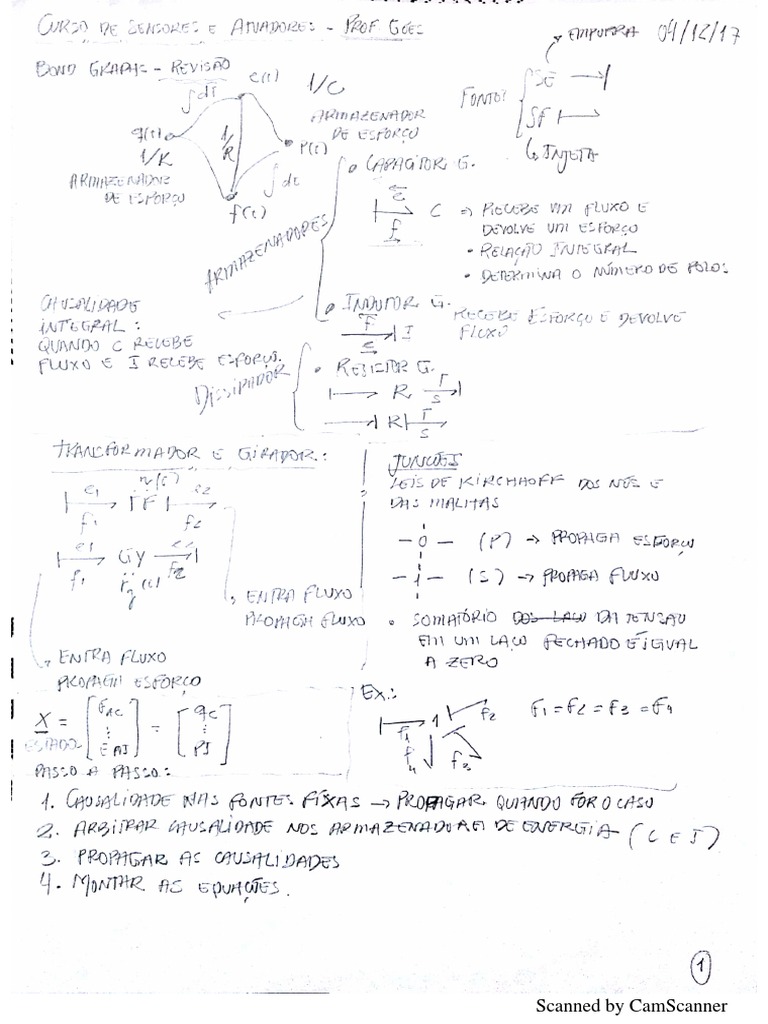 CURSO DE SENSORES E ATUADORES - PROF GOES
04/12/17
BOND GRAPHS - REVISÃO
EMPURRA
FONTES
SE
SF
INJETA
e(t)
1/C
∫dt
ARMAZENADOR
DE ESFORÇO
q(t)
1/R
P(t)
1/K
∫dt
ARMAZENADOR
DE ESFORÇO
f(t)
ARMAZENADORES
• CAPACITOR G.
E
C ⇒ RECEBE UM FLUXO E
f
DEVOLVE UM ESFORÇO
• RELAÇÃO INTEGRAL
• DETERMINA O NÚMERO DE POLOS
CAUSALIDADE
INTEGRAL:
QUANDO C RECEBE
FLUXO E I RECEBE ESFORÇO.
• INDUTOR G.
F
I
e
RECEBE ESFORÇO E DEVOLVE
FLUXO
DISSIPADOR
• RESISTOR G.
R
R
TRANSFORMADOR E GIRADOR:
e1 TF e2
f1 f2
e1 GY e2
f1 f2
ENTRA FLUXO
PROPAGA FLUXO
ENTRA FLUXO
PROPAGA ESFORÇO
JUNÇÕES
LEIS DE KIRCHHOFF DOS NÓS E
DAS MALHAS
-0- (P) → PROPAGA ESFORÇO
-1- (S) → PROPAGA FLUXO
• SOMATÓRIO DOS LAÇO DA TENSÃO
EM UM LAÇO FECHADO É IGUAL
A ZERO
X =
ESTADO
=
qC
⋮
PI
EX.:
1
f1
f2
f3
f4
F1 = F2 = F3 = F4
PASSO A PASSO:
1. CAUSALIDADE NAS FONTES FIXAS → PROPAGAR QUANDO FOR O CASO
2. ARBITRAR CAUSALIDADE NOS ARMAZENADORES DE ENERGIA (C E I)
3. PROPAGAR AS CAUSALIDADES
4. MONTAR AS EQUAÇÕES.
1
Scanned by CamScanner